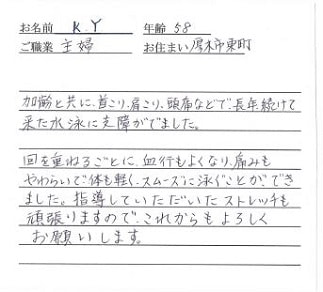 お名前 K.Y 年齢 58
ご職業 主婦 お住まい 厚木市東町
加齢と共に、首こり、肩こり、頭痛などで、長年続けて
来た水泳に支障がでました。
回を重ねるごとに、血行もよくなり、痛みも
やわらいで体も軽く、スムーズに泳ぐことができ
ました。指導していただいたストレッチも
頑張りますので、これからもよろしく
お願いします。